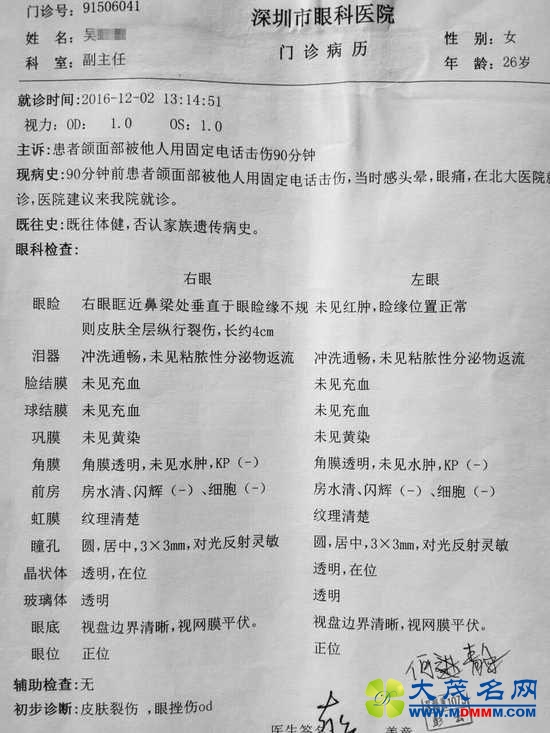 门诊号：91506041
深圳市眼科医院
姓 名：吴
门诊病历
性 别：女
科 室：副主任
年 龄：26岁
就诊时间：2016-12-02 13:14:51
视力：OD： 1.0 OS：1.0
主诉：患者颌面部被他人用固定电话击伤90分钟
现病史：90分钟前患者颌面部被他人用固定电话击伤，当时感头晕，眼痛，在北大医院就
诊，医院建议来我院就诊。
既往史：既往体健，否认家族遗传病史。
眼科检查：
右眼 左眼
眼睑 右眼眶近鼻梁处垂直于眼睑缘不规 未见红肿，睑缘位置正常
则皮肤全层纵行裂伤，长约4cm
泪器 冲洗通畅，未见粘脓性分泌物返流 冲洗通畅，未见粘脓性分泌物返流
脸结膜 未见充血 未见充血
球结膜 未见充血 未见充血
巩膜 未见黄染 未见黄染
角膜 角膜透明，未见水肿，KP（-） 角膜透明，未见水肿，KP（-）
前房 房水清、闪辉（-）、细胞（-） 房水清、闪辉（-）、细胞（-）
虹膜 纹理清楚 纹理清楚
瞳孔 圆，居中，3×3mm，对光反射灵敏 圆，居中，3×3mm，对光反射灵敏
晶状体 透明，在位 透明，在位
玻璃体 透明 透明
眼底 视盘边界清晰，视网膜平伏。 视盘边界清晰，视网膜平伏。
眼位 正位 正位
辅助检查：无
初步诊断：皮肤裂伤 ，眼挫伤od
医生签名 盖章
大茂名网
WWW.MDMMM.COM